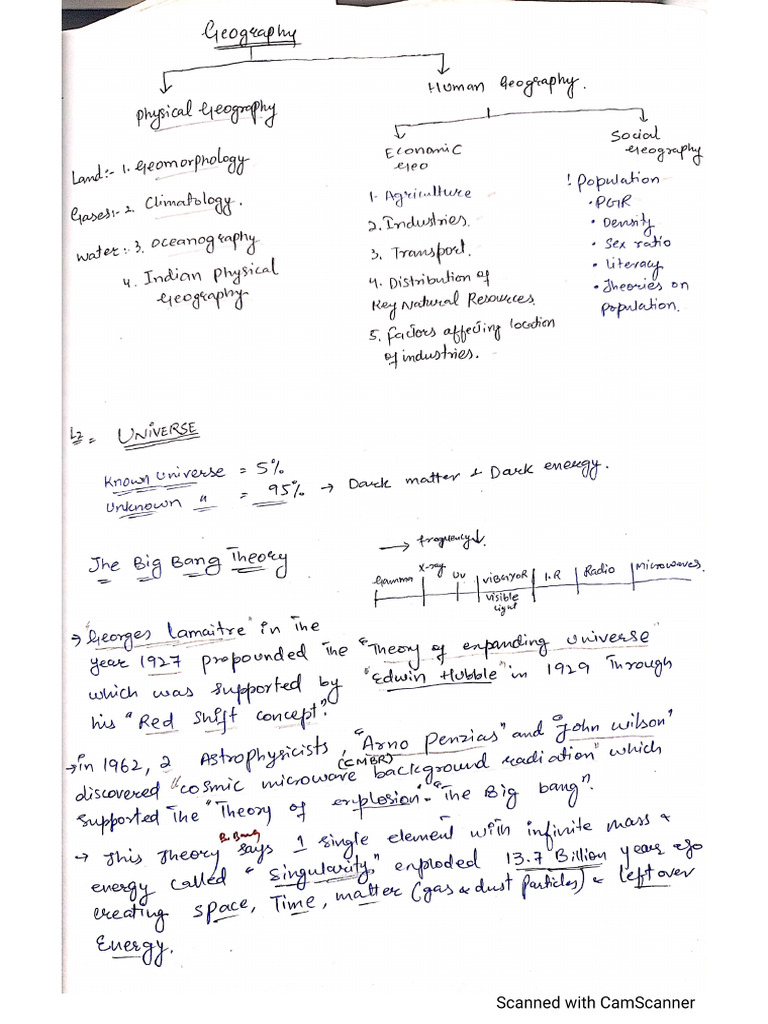 Geography
Physical Geography
Human Geography.
Land:- 1. Geomorphology
Gases:- 2. Climatology.
Water:- 3. Oceanography
4. Indian Physical
Geography
Economic
Geo
1. Agriculture
2. Industries.
3. Transport.
4. Distribution of
Key Natural Resources.
5. Factors affecting location
of industries.
Social
Geography
! Population
• PGR
• Density
• Sex ratio
• Literacy
• Theories on
population.
L2 = UNIVERSE
Known Universe = 5%
Unknown " = 95% → Dark matter & Dark energy.
The Big Bang Theory
→ frequency↓.
Gamma X-ray UV VIBGYOR I.R Radio Microwaves.
visible
light
→ "Georges Lamaitre" in The
year 1927 propounded The "Theory of expanding universe"
which was supported by "Edwin Hubble" in 1929 Through
his "Red shift concept".
→ in 1962, 2 Astrophysicists, "Arno Penzias" and "John Wilson"
(CMBR)
discovered "cosmic microwave background radiation" which
supported The "Theory of explosion" - "The Big bang".
B. Bang
→ This Theory says 1 single element with infinite mass &
energy called "Singularity," exploded 13.7 Billion years ago
creating space, Time, matter (gas & dust Particles) & left over
Energy.
Scanned with CamScanner